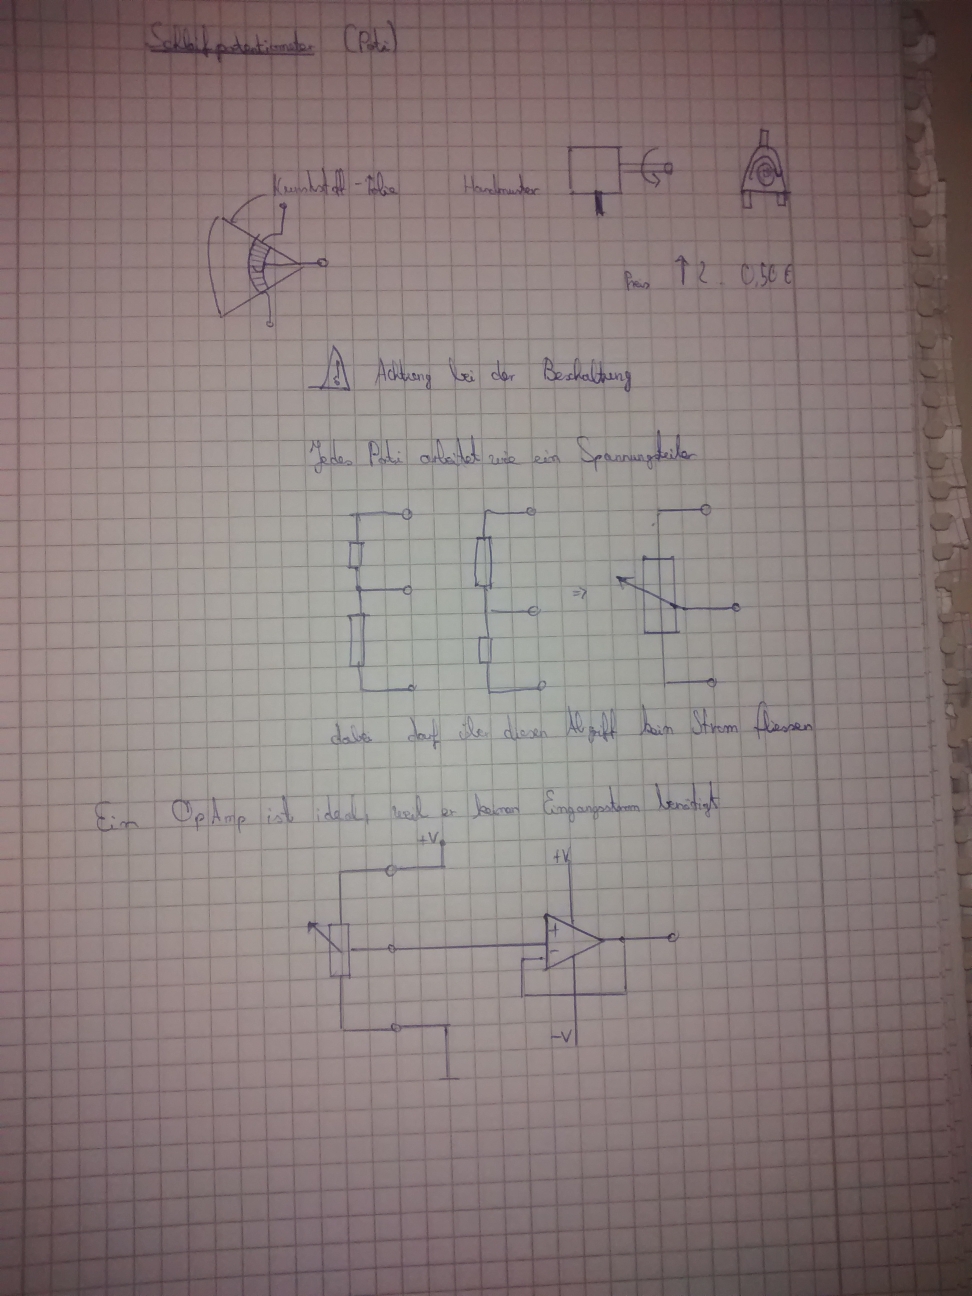 Schleifpotentiometer (Poti)
Kunststoff-Folie
Handmuster
Preis ↑ 2. 0,50 €
Achtung bei der Beschaltung
Jedes Poti arbeitet wie ein Spannungsteiler
=>
dabei darf über diesen Abgriff kein Strom fliessen
Ein OpAmp ist ideal, weil er keinen Eingangsstrom benötigt
+V
+V
+
-
-V